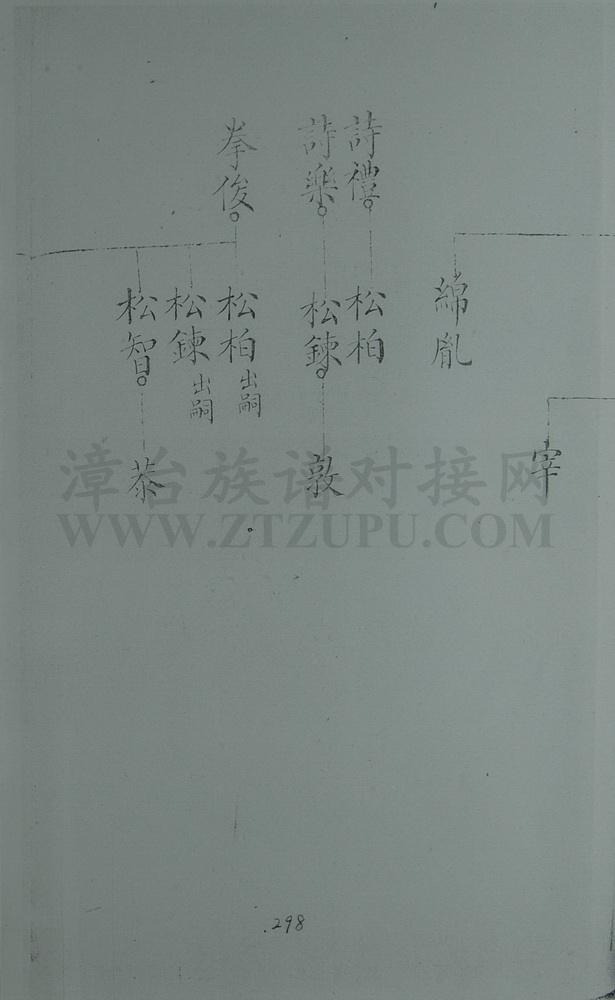 詩禮
詩樂
拳俊
綿胤
松柏
松鍊
松柏出嗣
松鍊出嗣
松智
宰
敦
恭
漳台族谱对接网
WWW.ZTZUPU.COM
298